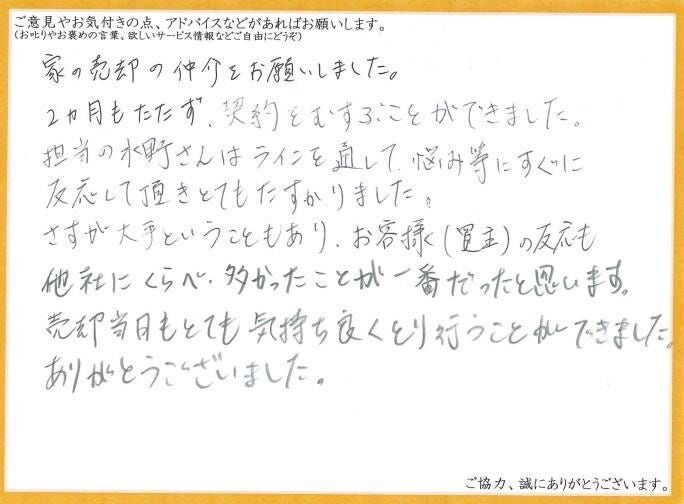 ご意見やお気付きの点、アドバイスなどがあればお願いします。
(お叱りやお褒めの言葉、欲しいサービス情報などご自由にどうぞ)
家の売却の仲介をお願いしました。
2ヵ月もたたず、契約をむすぶことができました。
担当の水野さんはラインを通して、悩み等にすぐに
反応して頂きとてもたすかりました。
さすが大手ということもあり、お客様く(買主)の反応も
他社にくらべ、多かったことが一番だったと思います。
売却当日もとても気持ち良くとり行うことができました。
ありがとうございました。
ご協力、誠にありがとうございます。